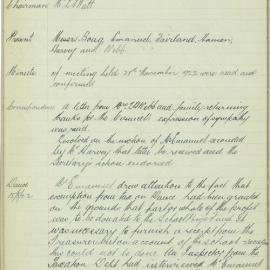 Chairman Mr L A Watt
Present Messrs Boag, Emanuel, Fairland, Hannon,
Harvey and Webb.
Minutes of meeting held 25th November 1952 were read and
confirmed
Correspondence A letter from Mrs Webb and family returning
thanks for the Council's expression of sympathy
was read.
Resolved on the motion of Mr Emanuel seconded
by Mr Harvey that letter be received and the
Secretary's action endorsed
Dance Mr Emanuel drew attention to the fact that
exemption from tax on Dance had been granted
on the grounds that the whole of the profit
was to be donated to the School Fund. It
was necessary to furnish a receipt from the
Treasurer but on account of the school vacation
this could not be done. An Inspector from the
Taxation Dept had interviewed Mr Emanuel